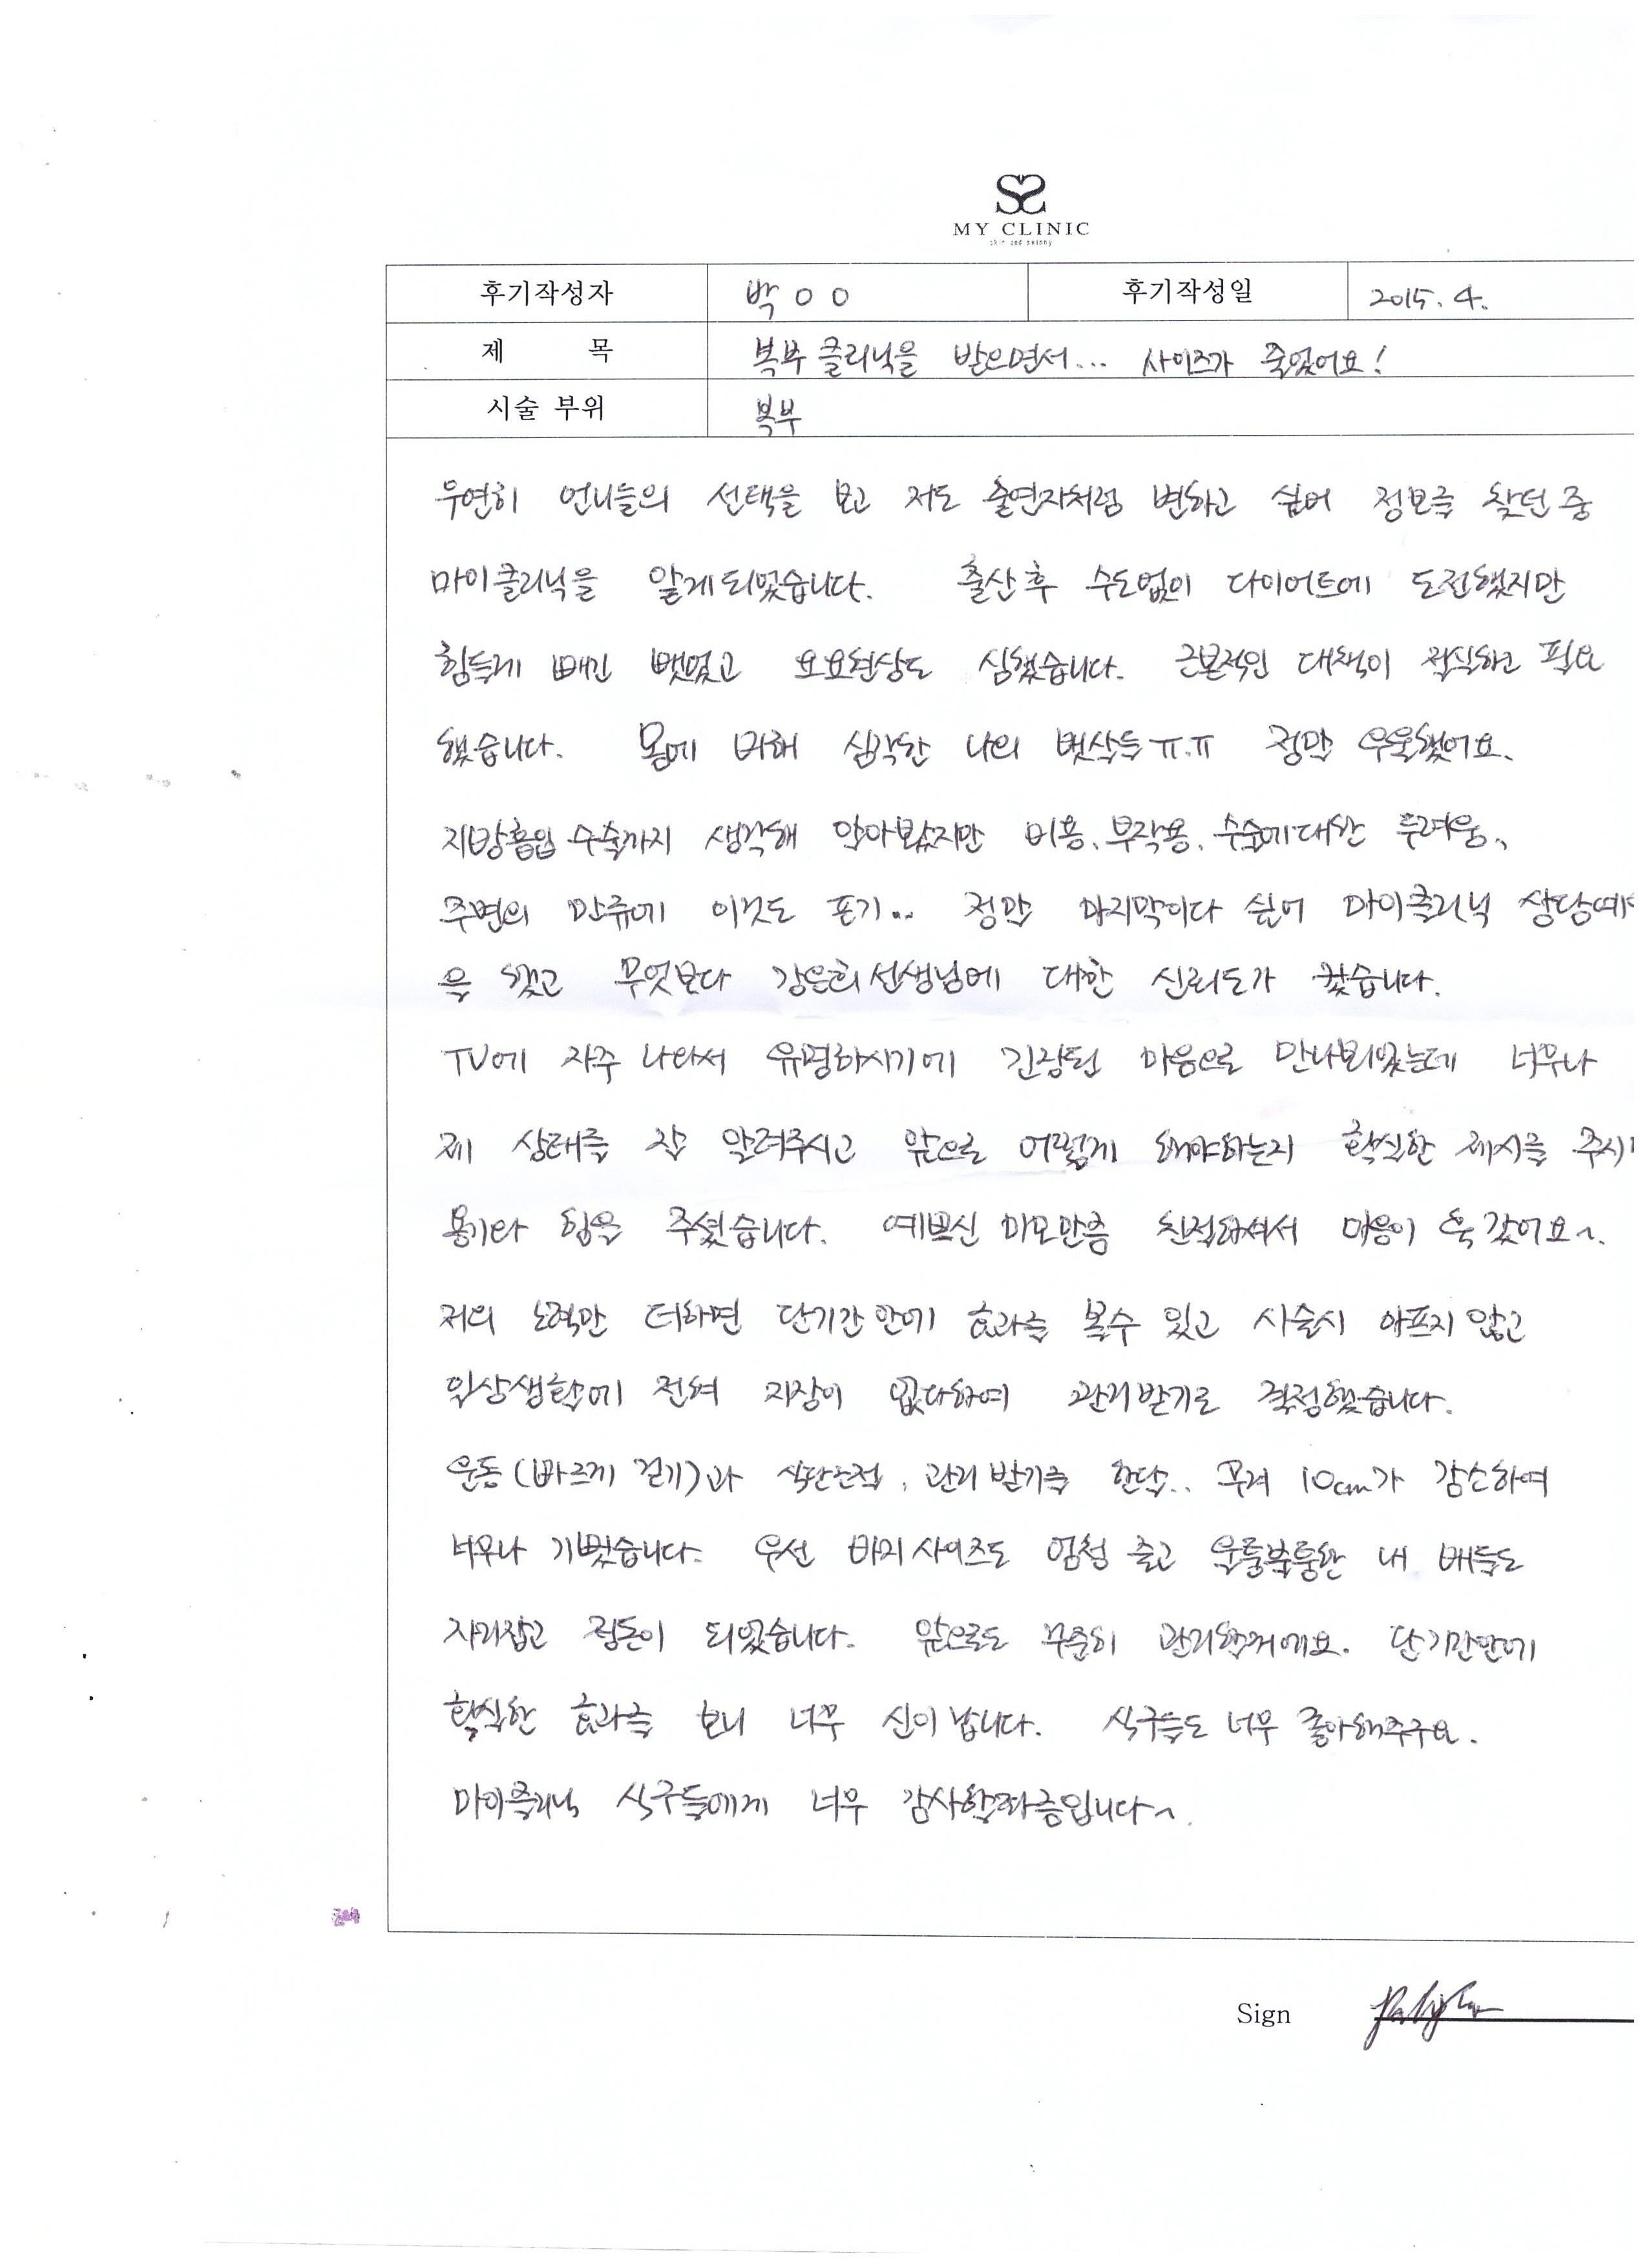 MY CLINIC
skin and skinny
후기작성자 박 O O 후기작성일 2015. 4.
제 목 복부 클리닉을 받으면서... 사이즈가 줄었어요!
시술 부위 복부
우연히 언니들의 선택을 보고 저도 출연자처럼 변하고 싶어 정보를 찾던 중
마이클리닉을 알게되었습니다. 출산 후 수도없이 다이어트에 도전했지만
힘들게 빼긴 뺐었고 요요현상도 심했습니다. 근본적인 대책이 절실하고 필요
했습니다. 몸에 비해 심각한 나의 뱃살들 ㅠ.ㅠ 정말 우울했어요.
지방흡입 수술까지 생각해 알아봤지만 비용, 부작용, 수술에대한 두려움,
주변의 만류에 이것도 포기.. 정말 마지막이다 싶어 마이클리닉 상담예
을 했고 무엇보다 강은희 선생님에 대한 신뢰도가 컸습니다.
TV에 자주 나와서 유명하시기에 긴장된 마음으로 만나뵈었는데 너무나
제 상태를 잘 알려주시고 앞으로 어떻게 해야하는지 확실한 제시를 주시
용기와 힘을 주셨습니다. 예쁘신 미모만큼 친절하셔서 마음이 쏙 갔어요~.
저의 노력만 더하면 단기간 안에 효과를 볼수 있고 시술시 아프지 않고
일상생활에 전혀 지장이 없다하여 관리받기로 결정했습니다.
운동(빠르게 걷기)과 식단조절, 관리 받기를 한달.. 무려 10cm가 감소하여
너무나 기뻤습니다. 우선 바지 사이즈도 엄청 줄고 울퉁불퉁한 내 배들도
자리잡고 정돈이 되었습니다. 앞으로도 꾸준히 관리할거에요. 단기간안에
확실한 효과를 보니 너무 신이 납니다. 식구들도 너무 좋아해주구요.
마이클리닉 식구들에게 너무 감사할따름입니다~.
Sign